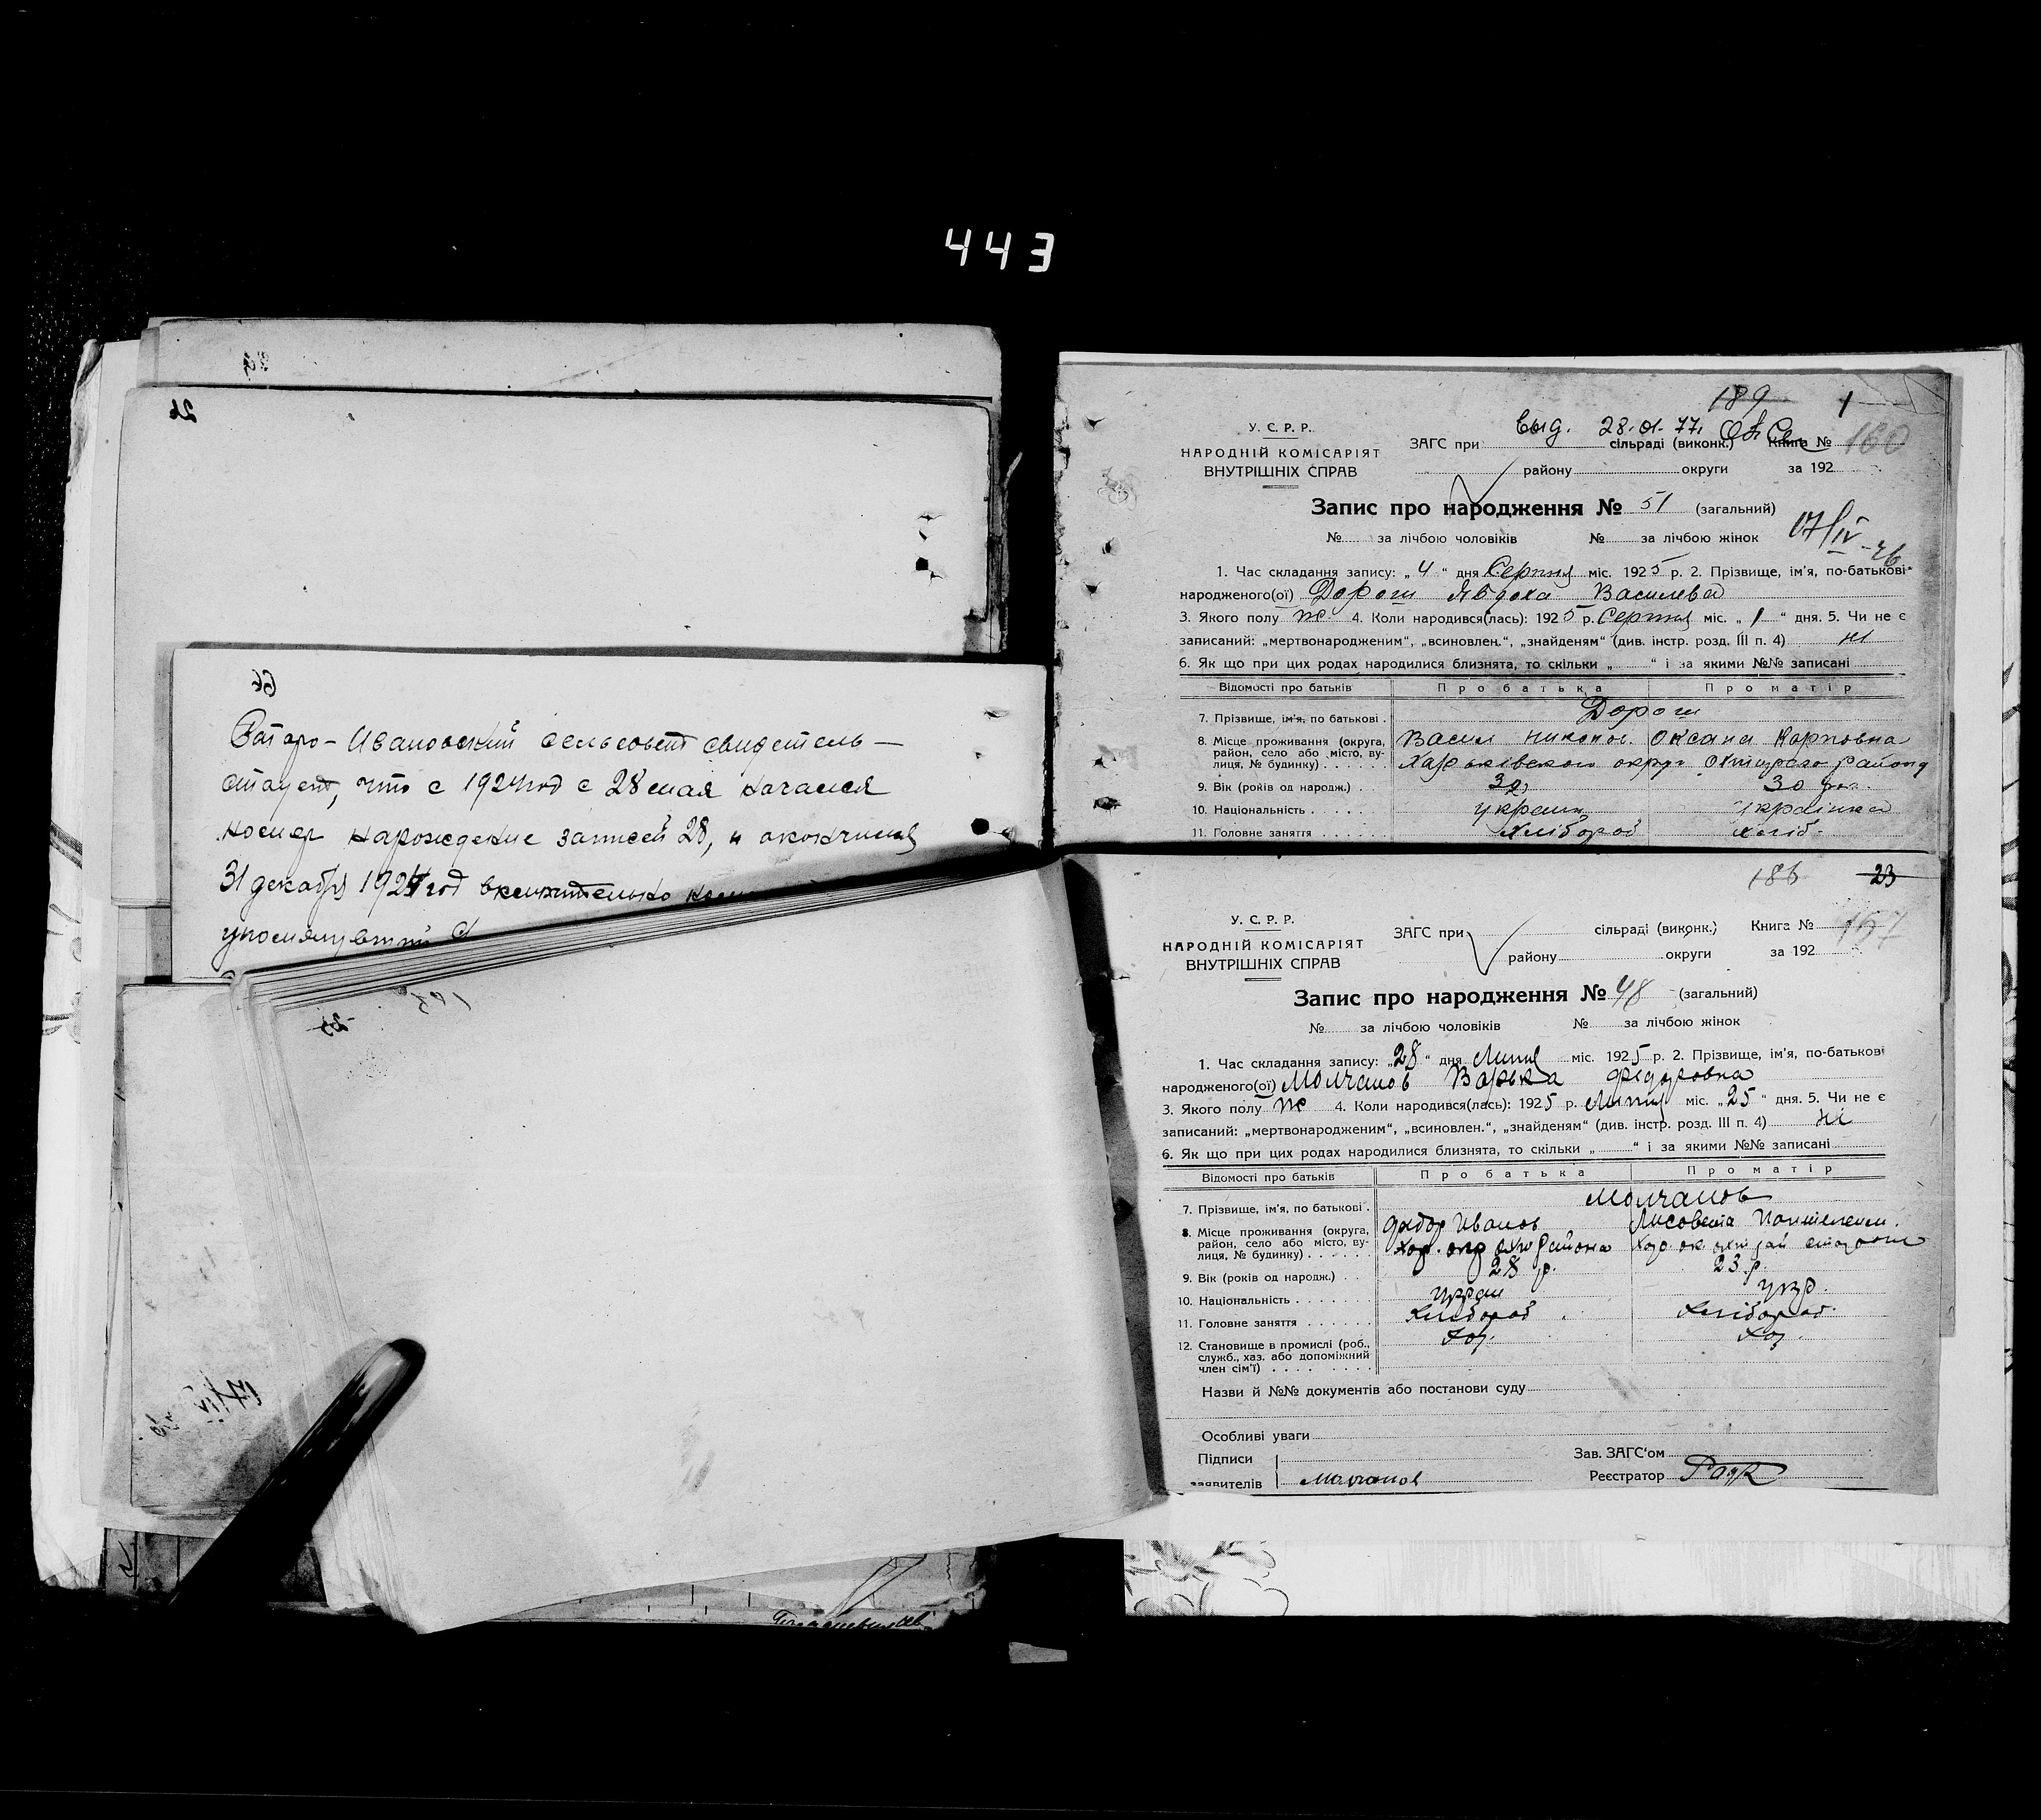 443
26
Старо-Ивановский сельсовет свидетель-
ствует, что с 1924 год с 28 мая начался
номер нарождение записей 28, и окончился
31 декабря 1924 год включительно
189 1
У. С. Р. Р.
НАРОДНІЙ КОМІСАРІЯТ
ВНУТРІШНІХ СПРАВ
выд. 28.01.77.
ЗАГС при сільраді (виконк.) Книга № 160
району округи за 192
Запис про народження № 51 (загальний)
№ за лічбою чоловіків № за лічбою жінок
17/IV-76
1. Час складання запису: „4“ дня Серпня міс. 1925 р. 2. Прізвище, ім'я, по-батькові
народженого(ої) Дорош Явдоха Василева
3. Якого полу ж 4. Коли народився(лась): 1925 р. Серпня міс. „1“ дня. 5. Чи не є
записаний: „мертвонародженим“, „всиновлен.“, „знайденям“ (див. інстр. розд. III п. 4) ні
6. Як що при цих родах народилися близнята, то скільки „ “ і за якими №№ записані
Відомості про батьків Про батька Про матір
7. Прізвище, ім'я, по батькові Дорош
8. Місце проживання (округа, район, село або місто, вулиця, № будинку) Васил Никонов. Оксана Карповна
Харьківского округ Охтирсько району
9. Вік (років од народж.) 32 30 рок.
10. Національність украин українка
11. Головне заняття Хлібороб хліб.
186 23
У. С. Р. Р.
НАРОДНІЙ КОМІСАРІЯТ
ВНУТРІШНІХ СПРАВ
ЗАГС при сільраді (виконк.) Книга № 157
району округи за 192
Запис про народження № 48 (загальний)
№ за лічбою чоловіків № за лічбою жінок
1. Час складання запису: „28“ дня Липня міс. 1925 р. 2. Прізвище, ім'я, по-батькові
народженого(ої) Молчанов Варька Федоровна
3. Якого полу ж 4. Коли народився(лась): 1925 р. Липня міс. „25“ дня. 5. Чи не є
записаний: „мертвонародженим“, „всиновлен.“, „знайденям“ (див. інстр. розд. III п. 4) ні
6. Як що при цих родах народилися близнята, то скільки „ “ і за якими №№ записані
Відомості про батьків Про батька Про матір
7. Прізвище, ім'я, по батькові Молчанов
8. Місце проживання (округа, район, село або місто, вулиця, № будинку) Федор Иванов Лисовета Пантелеем.
Хар. окр Охт района Хар ок охт рай
9. Вік (років од народж.) 28 р. 23 р.
10. Національність украи укр.
11. Головне заняття Хлібороб Хлібороб.
12. Становище в промислі (роб., служб., хаз. або допоміжний член сім'ї) Хоз. Хоз.
Назви й №№ документів або постанови суду
Особливі уваги
Підписи
заявителів Молчанов
Зав. ЗАГС'ом
Реєстратор